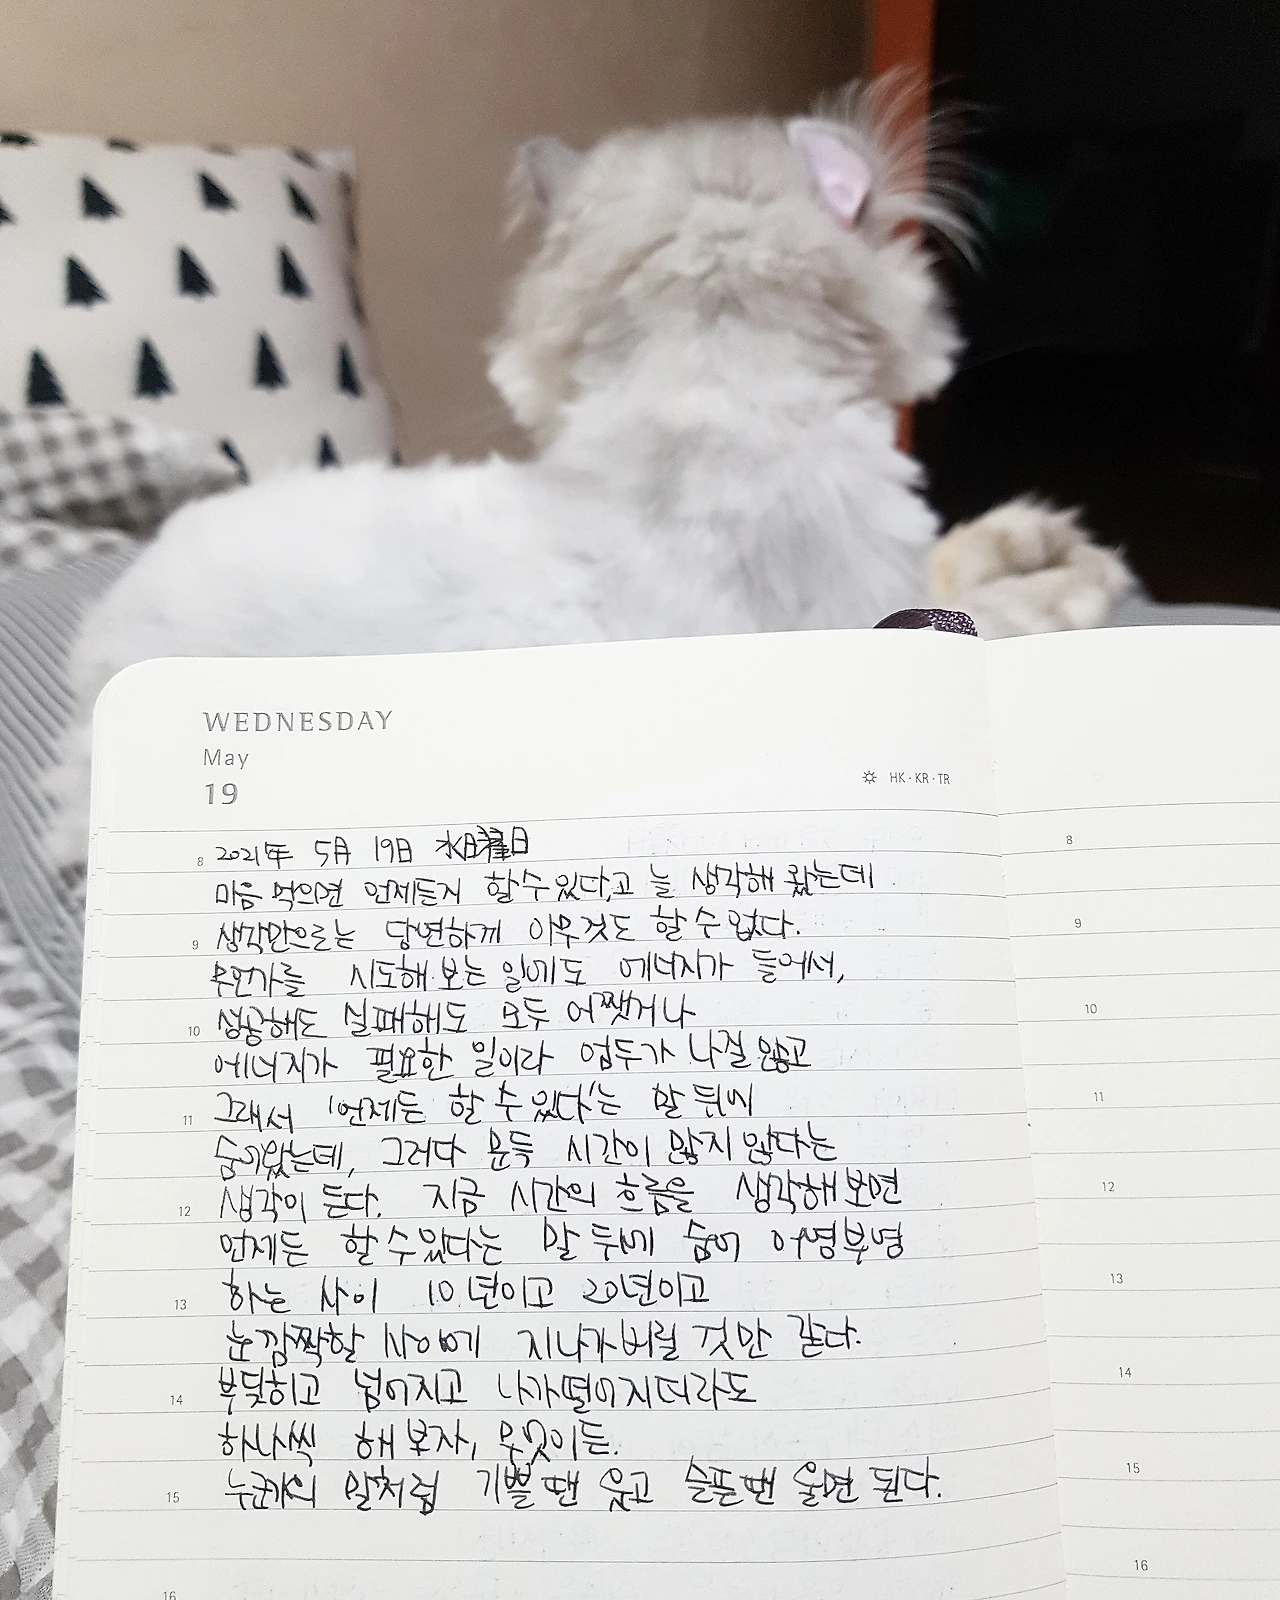 WEDNESDAY
May
19
HK · KR · TR
8 2021年 5月 19日 水曜日
마음 먹으면 언제든지 할 수 있다고 늘 생각해 왔는데
9 생각만으로는 당연하게 아무것도 할 수 없다.
무언가를 시도해 보는 일에도 에너지가 들어서,
10 성공해도 실패해도 모두 어쨌거나
에너지가 필요한 일이라 엄두가 나질 않고
11 그래서 '언제든 할 수 있다'는 말 뒤에
숨어왔는데, 그러다 문득 시간이 많지 않다는
12 생각이 든다. 지금 시간의 흐름을 생각해보면
언제든 할 수 있다는 말 뒤에 숨어 어영부영
13 하는 사이 10년이고 20년이고
눈 깜짝할 사이에 지나가버릴 것만 같다.
14 부딪히고 넘어지고 나가떨어지더라도
하나씩 해 보자, 무엇이든.
15 누군가의 말처럼 기쁠 땐 웃고 슬픈땐 울면 된다.
16
8
9
10
11
12
13
14
15
16